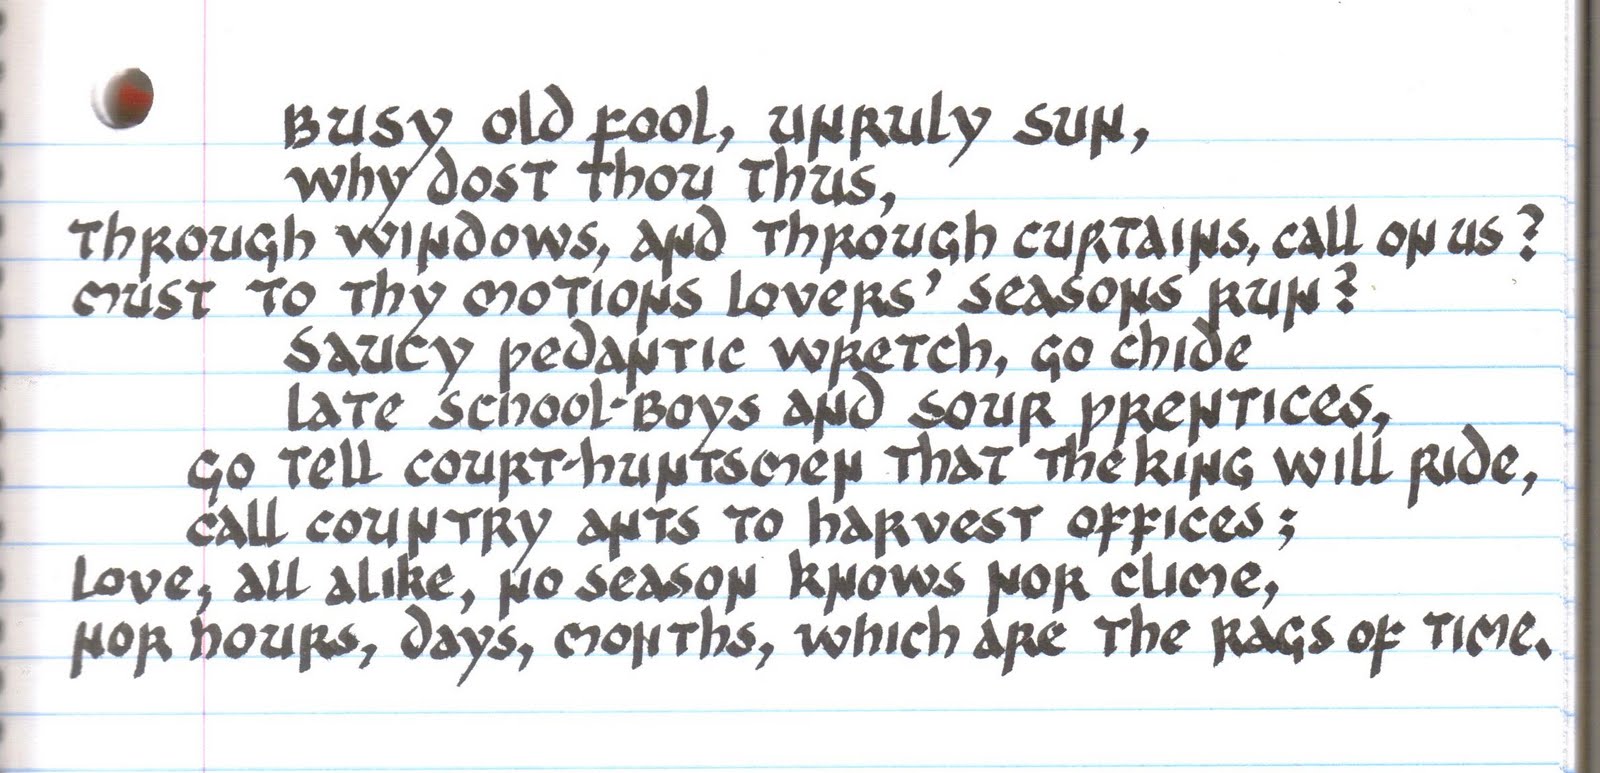 Busy old fool, unruly sun,
why dost thou thus,
through windows, and through curtains, call on us?
must to thy motions lovers' seasons run?
Saucy pedantic wretch, go chide
late school-boys and sour prentices,
go tell court-huntsmen that the king will ride,
call country ants to harvest offices;
Love, all alike, no season knows nor clime,
nor hours, days, months, which are the rags of time.